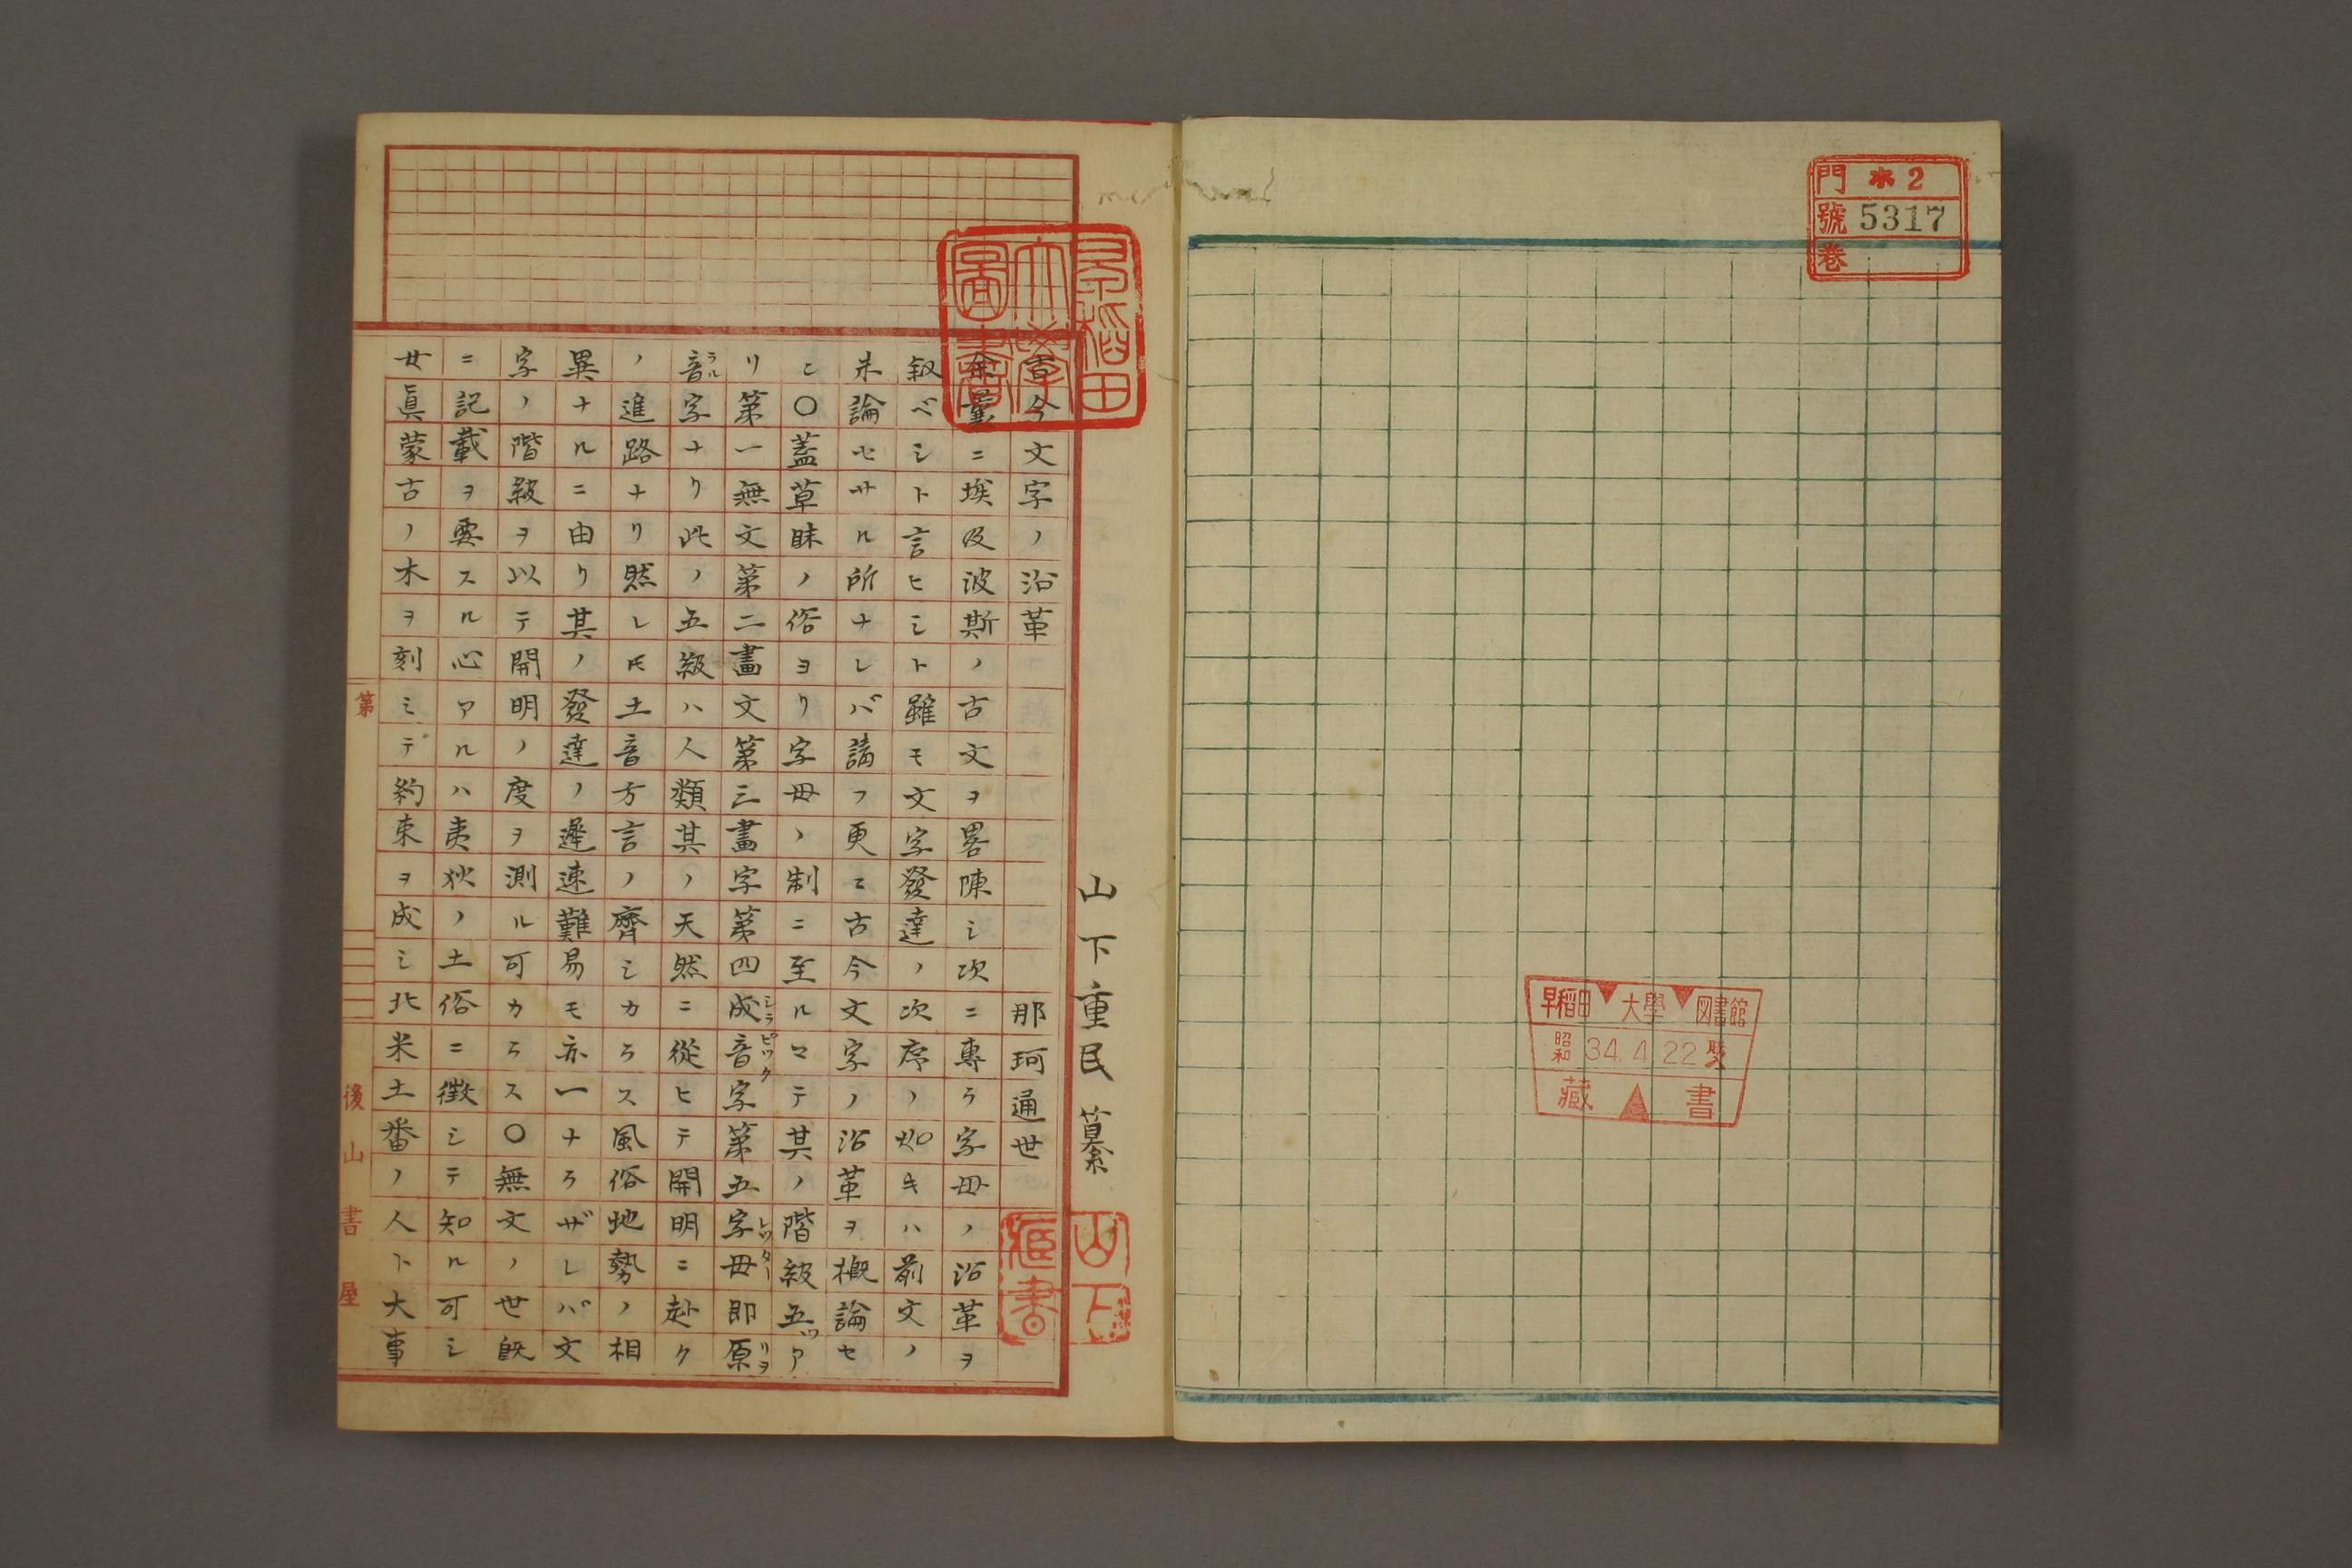 門 ホ2
號 5317
巻
早稲田大學図書館
昭和 34.4.22
藏書
山下重民纂
山下
藏書
早稻田大學圖書
古今文字ノ沿革 那珂通世
余曩ニ埃及波斯ノ古文ヲ畧陳シ次ニ專ラ字母ノ沿革ヲ
叙ベシト言ヒシト雖モ文字發達ノ次序ノ如キハ前文ノ
未論セサル所ナレバ請フ更ニ古今文字ノ沿革ヲ概論セ
ン〇蓋草昧ノ俗ヨリ字母ノ制ニ至ルマテ其ノ階級五ツア
リ第一無文第二畫文第三畫字第四成音字シラビック第五字母レッター即原音ヲリ
音ラル字ナリ此ノ五級ハ人類其ノ天然ニ從ヒテ開明ニ赴ク
ノ進路ナリ然レ𪜈土音方言ノ齊シカラス風俗地勢ノ相
異ナルニ由リ其ノ發達ノ遲速難易モ亦一ナラザレバ文
字ノ階級ヲ以テ開明ノ度ヲ測ル可カラス〇無文ノ世既
ニ記載ヲ要スル心アルハ夷狄ノ土俗ニ徴シテ知ル可シ
女眞蒙古ノ木ヲ刻ミテ約束ヲ成シ北米土番ノ人ト大事
第
後山書屋